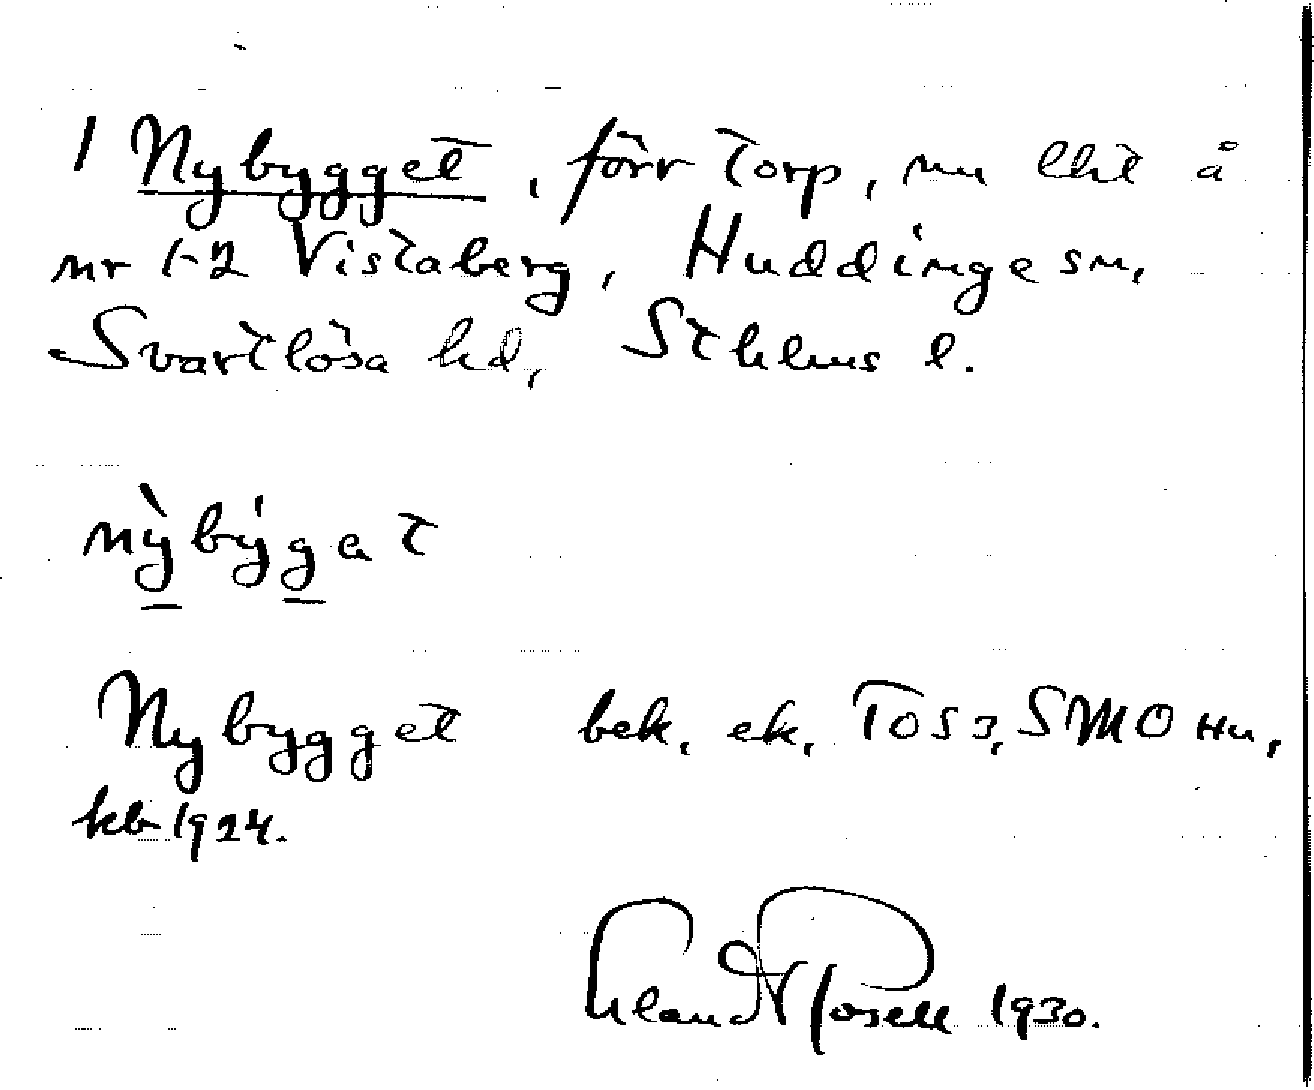 1 Nybygget, förr torp, nu lht å
nr 1-2 Vistaberg, Huddinge sn,
Svartlösa hd, Sthlms l.
nỳbýgat
Nybygget bek, ek, TOS3, SMOHu,
kb 1924.
Rosell 1930.